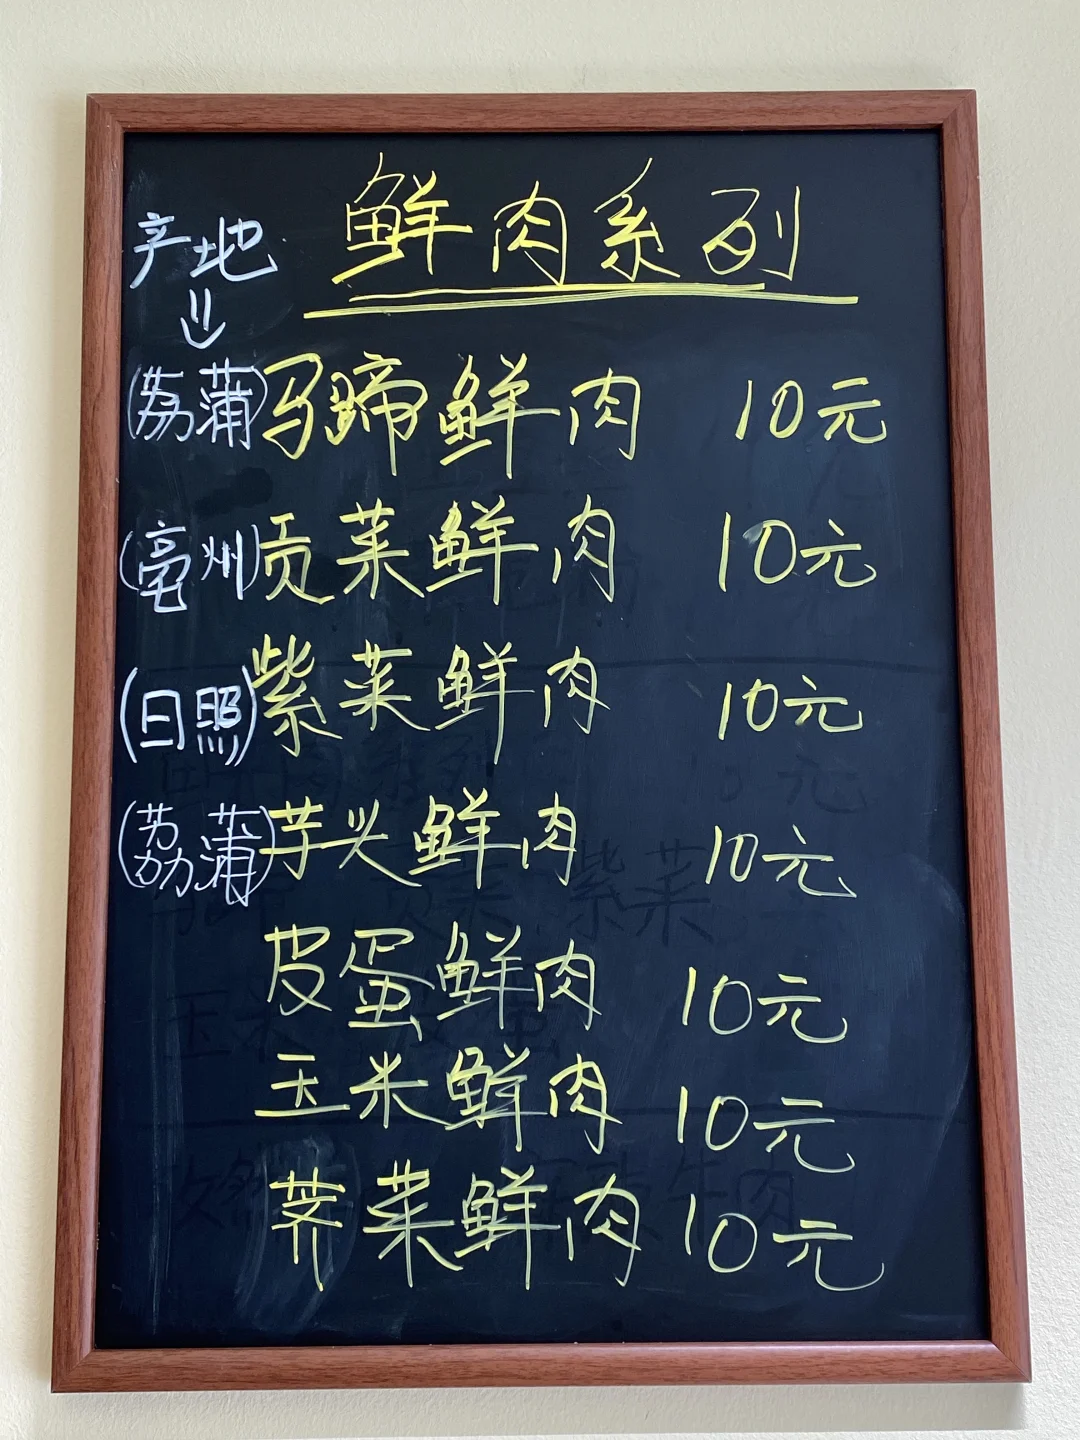 鲜肉系列
产地
(荔蒲)马蹄鲜肉 10元
(亳州)贡菜鲜肉 10元
(日照)紫菜鲜肉 10元
(荔蒲)芋头鲜肉 10元
皮蛋鲜肉 10元
玉米鲜肉 10元
荠菜鲜肉 10元